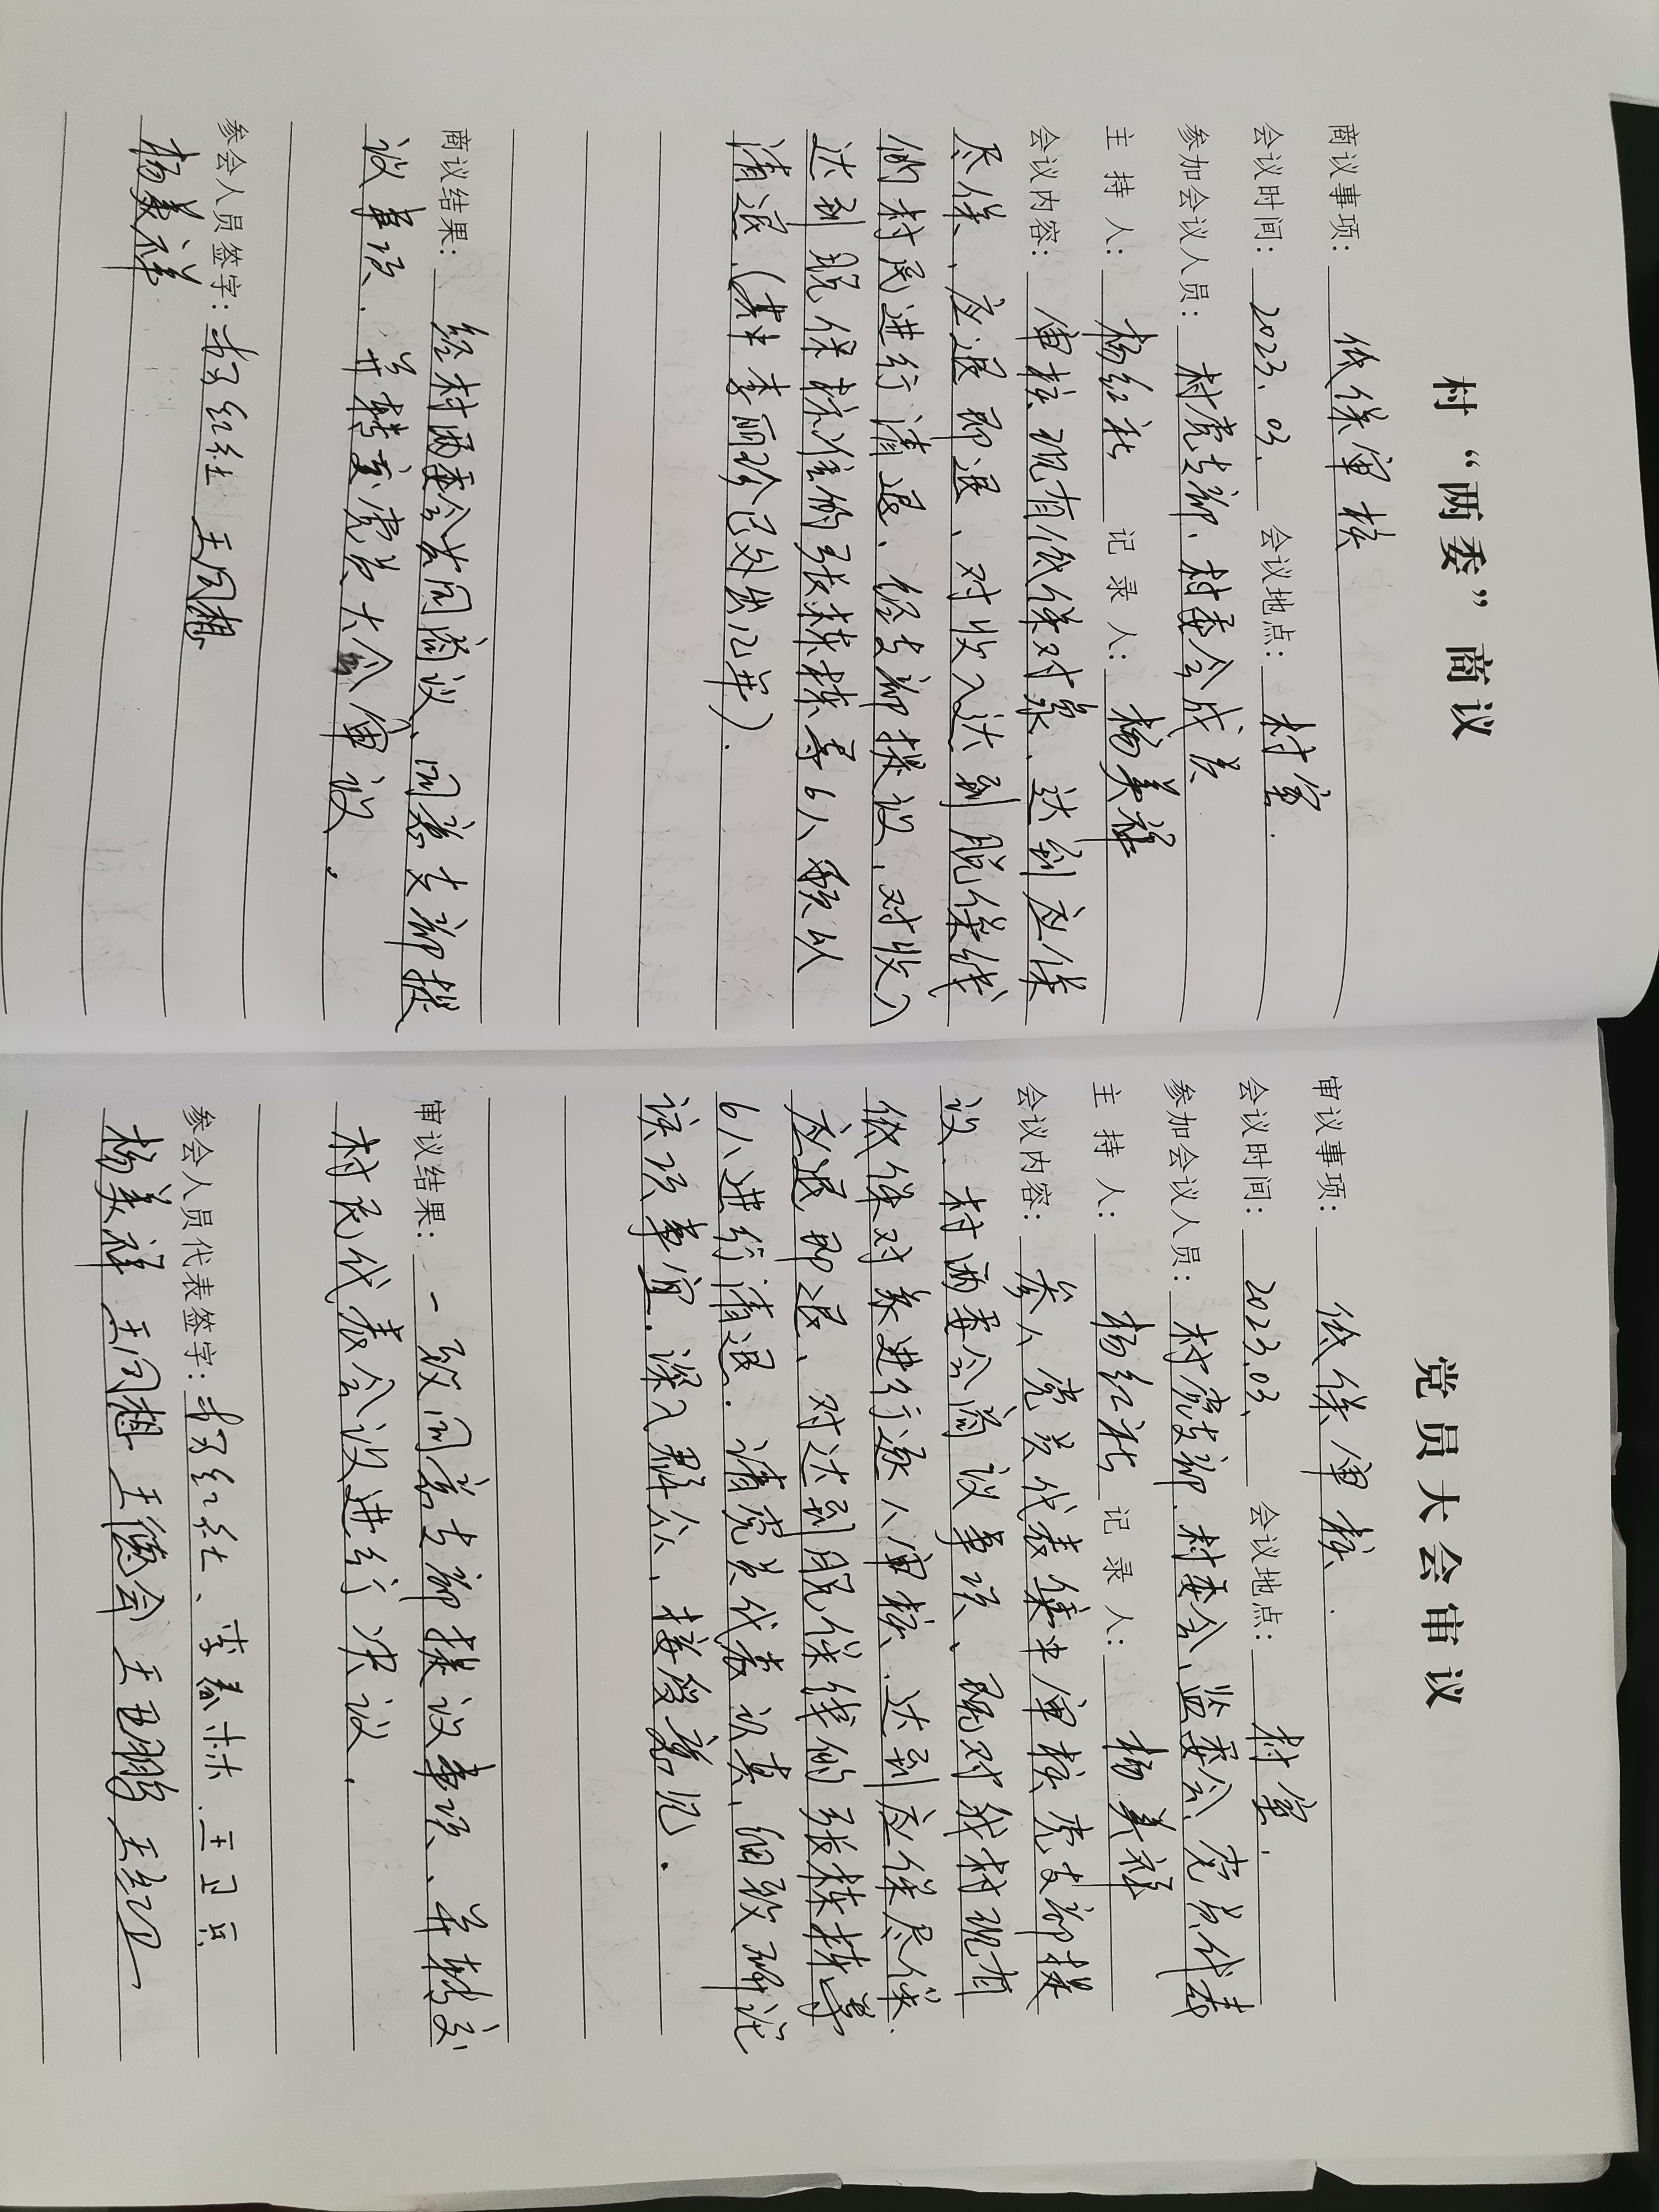 村“两委”商议
商议事项: 低保审核
会议时间: 2023.03. 会议地点: 村室.
参加会议人员: 村党支部、村委会成员
主持人: 杨红社 记录人: 杨美祥
会议内容: 审核现有低保对象、达到应保
尽保、应退即退、对收入达到脱保线
的村民进行清退、经支部提议、对收入
达到脱保标准的张栋栋等6人予以
清退、(其中李丽珍已外出几年).
商议结果: 经村两委会共同商议、同意支部提
议事项.并转交党员大会审议.
参会人员签字: 杨红社 王同想
杨美祥
党员大会审议
审议事项: 低保审核.
会议时间: 2023.03. 会议地点: 村室.
参加会议人员: 村党支部.村委会、监委会、党员代表
主持人: 杨红社 记录人: 杨美祥
会议内容: 参人党员代表集中审核党支部提
议、村两委会商议事项、既对我村现有
低保对象进行逐人审核、达到应保尽保.
应退即退、对达到脱保线的张栋栋等
6人进行清退.请党员代表认真、细致研论
该项事宜.深入群众、接受意见.
审议结果: 一致同意支部提议事项、并转交
村民代表会议进行决议.
参会人员代表签字: 杨红社、李春林.王卫兵
杨美祥 王同想 王德会 王丑鹏 王红卫